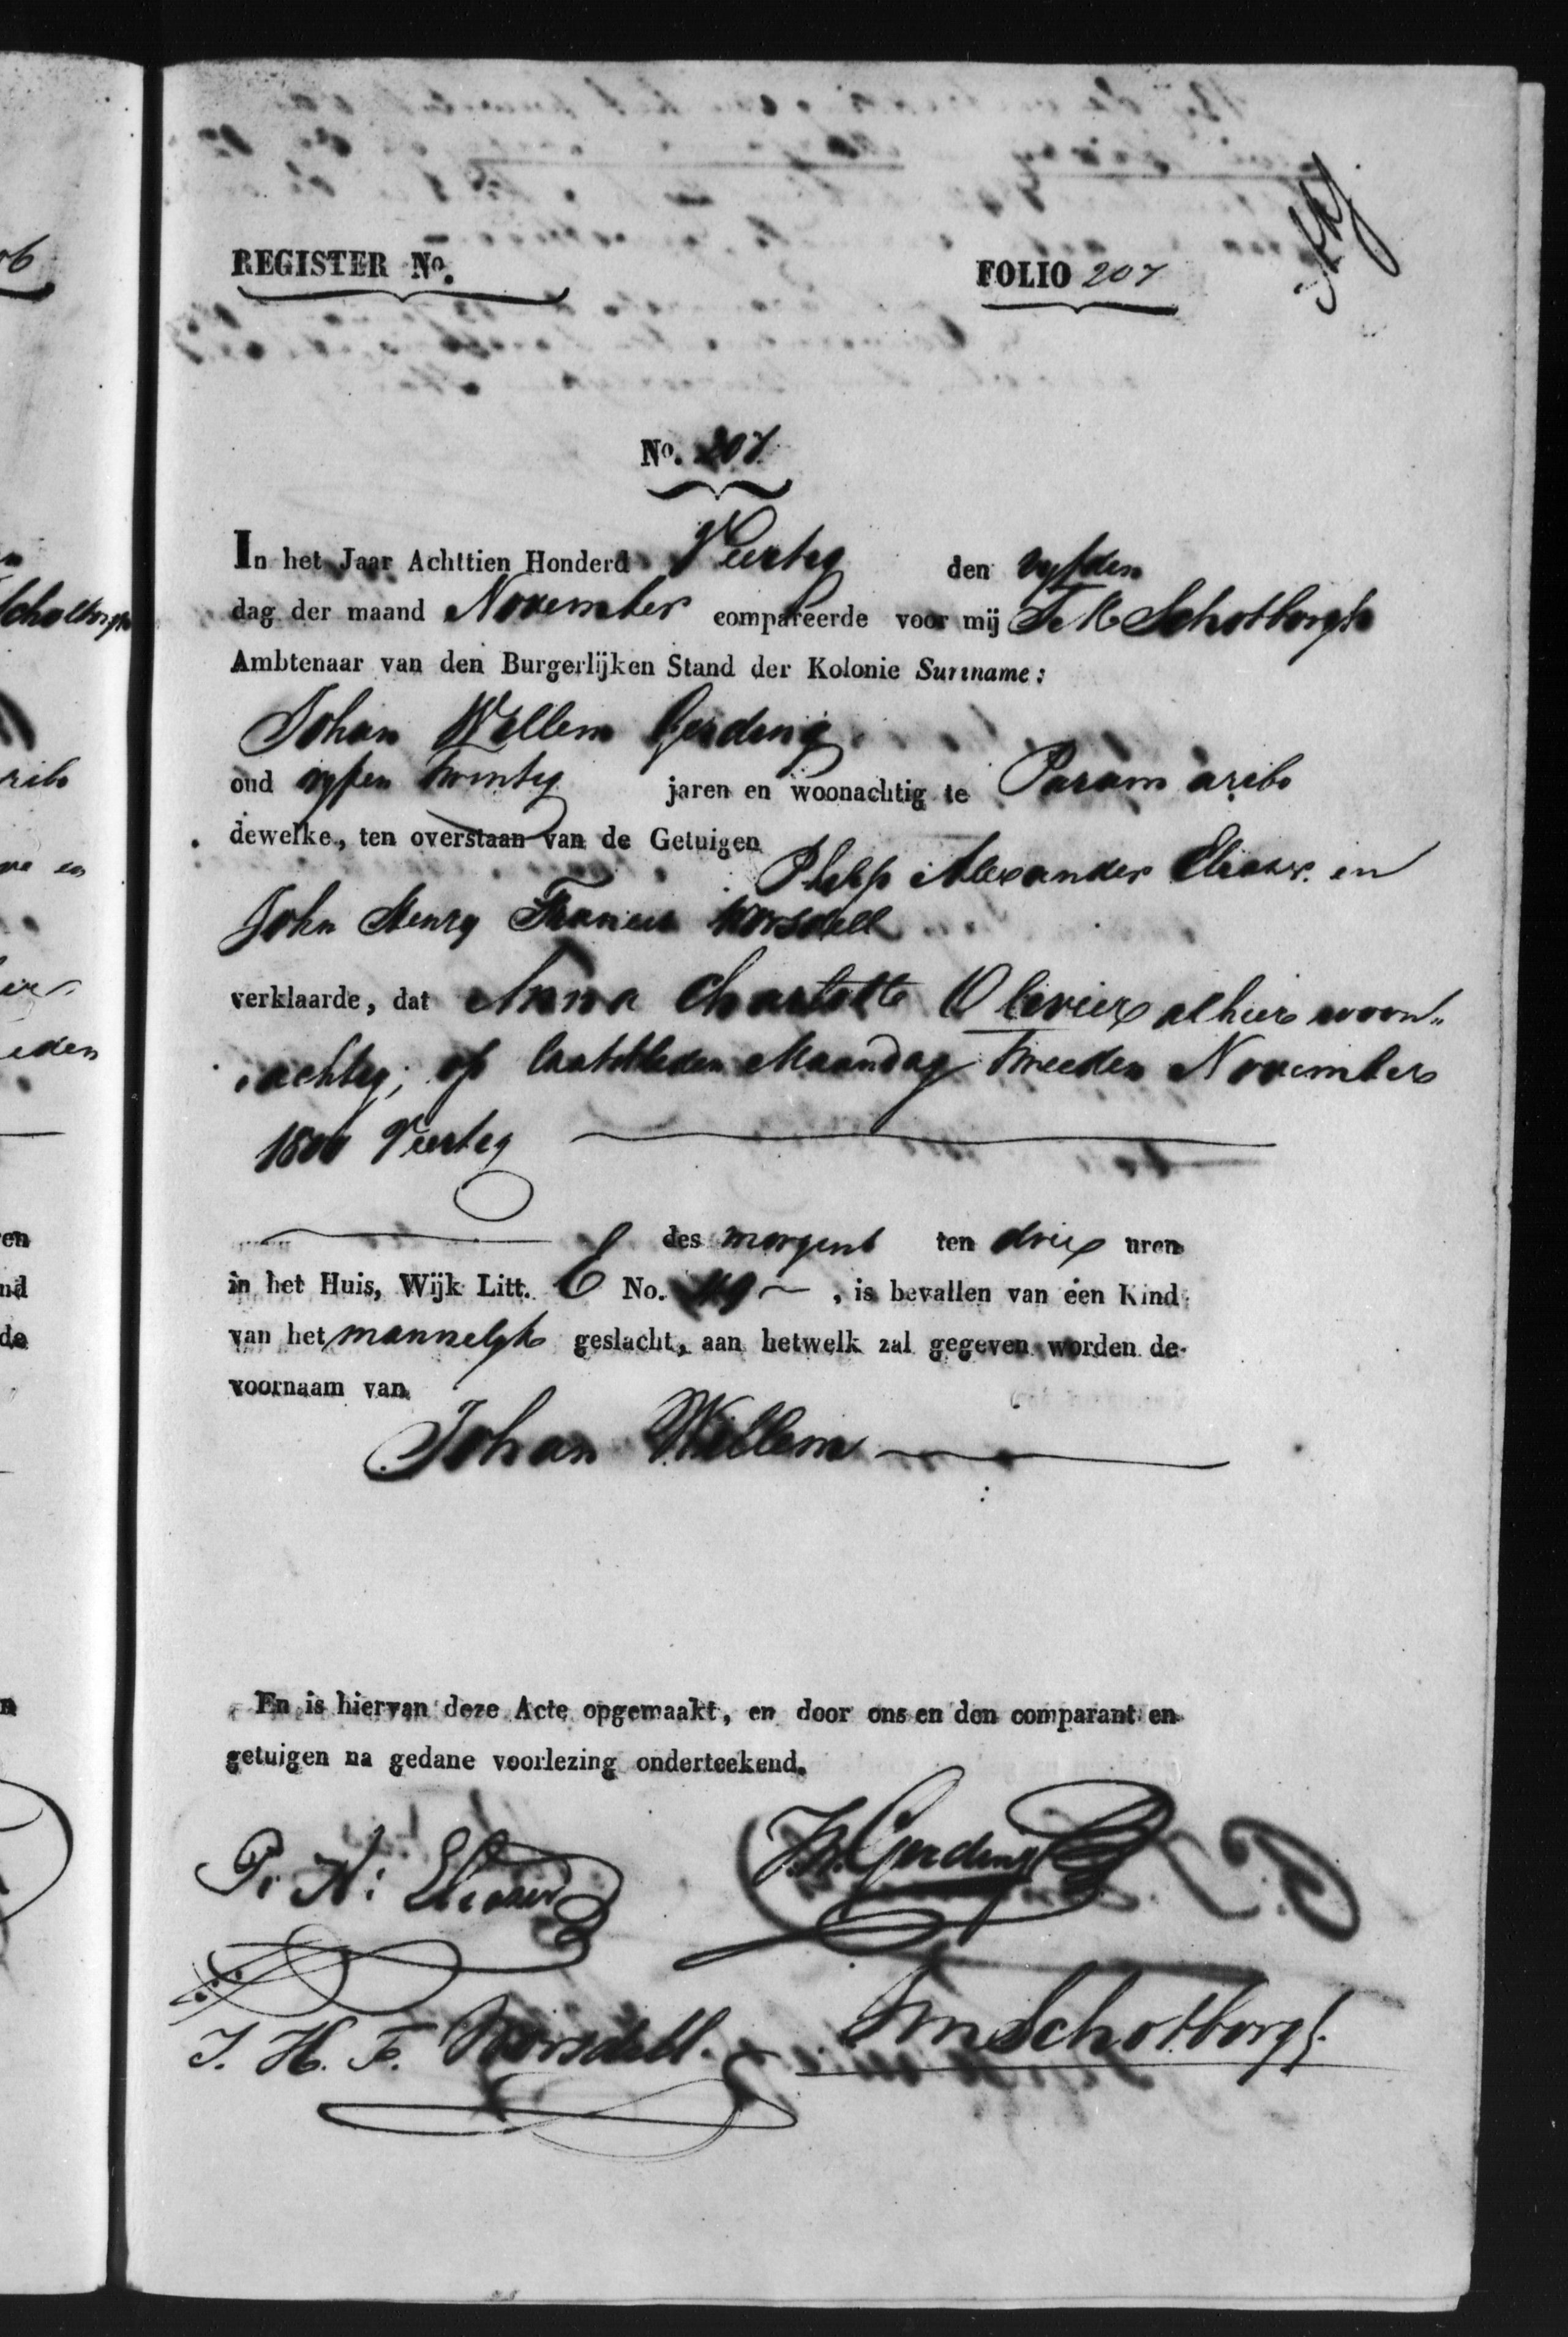 REGISTER No.
FOLIO 207
No. 207
In het Jaar Achttien Honderd Veertig den vyfden
dag der maand November compareerde voor mij Schotborgh
Ambtenaar van den Burgerlijken Stand der Kolonie Suriname:
Johan Willem Gerding
oud vyfen twintig jaren en woonachtig te Paramaribo
dewelke, ten overstaan van de Getuigen
Philip Alexander en
John Henry Francis Worsdell
verklaarde, dat Anna Charlotte Olivier alhier woon„
achtig, op laatstleden Maandag tweeden November
1800 Veertig
des morgens ten drie uren
in het Huis, Wijk Litt. E No. , is bevallen van een Kind
van het mannelyk geslacht, aan hetwelk zal gegeven worden de
voornaam van
Johan Willem
En is hiervan deze Acte opgemaakt, en door ons en den comparant en
getuigen na gedane voorlezing onderteekend.
J.W. Gerding
J. H. F. Worsdell. Schotborgh